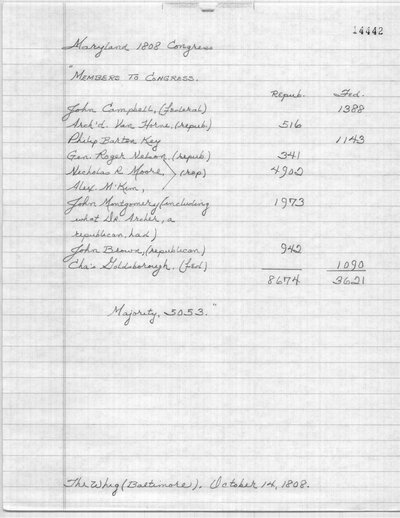 14442
Maryland 1808 Congress
"MEMBERS TO CONGRESS.
Repub. Fed.
John Campbell, (federal) 1388
Arch'd. Van Horne, (repub) 516
Philip Barton Key 1143
Gen. Roger Nelson (repub) 341
Nicholas R Moore, (rep) 4902
Alex. McKim,
John Montgomery (including 1973
what Dr Archer, a
republican, had)
John Brown, (republican) 942
Cha's Goldsborough. (fed) 1090
8674 3621
Majority, 5053."
The Whig (Baltimore). October 14, 1808.